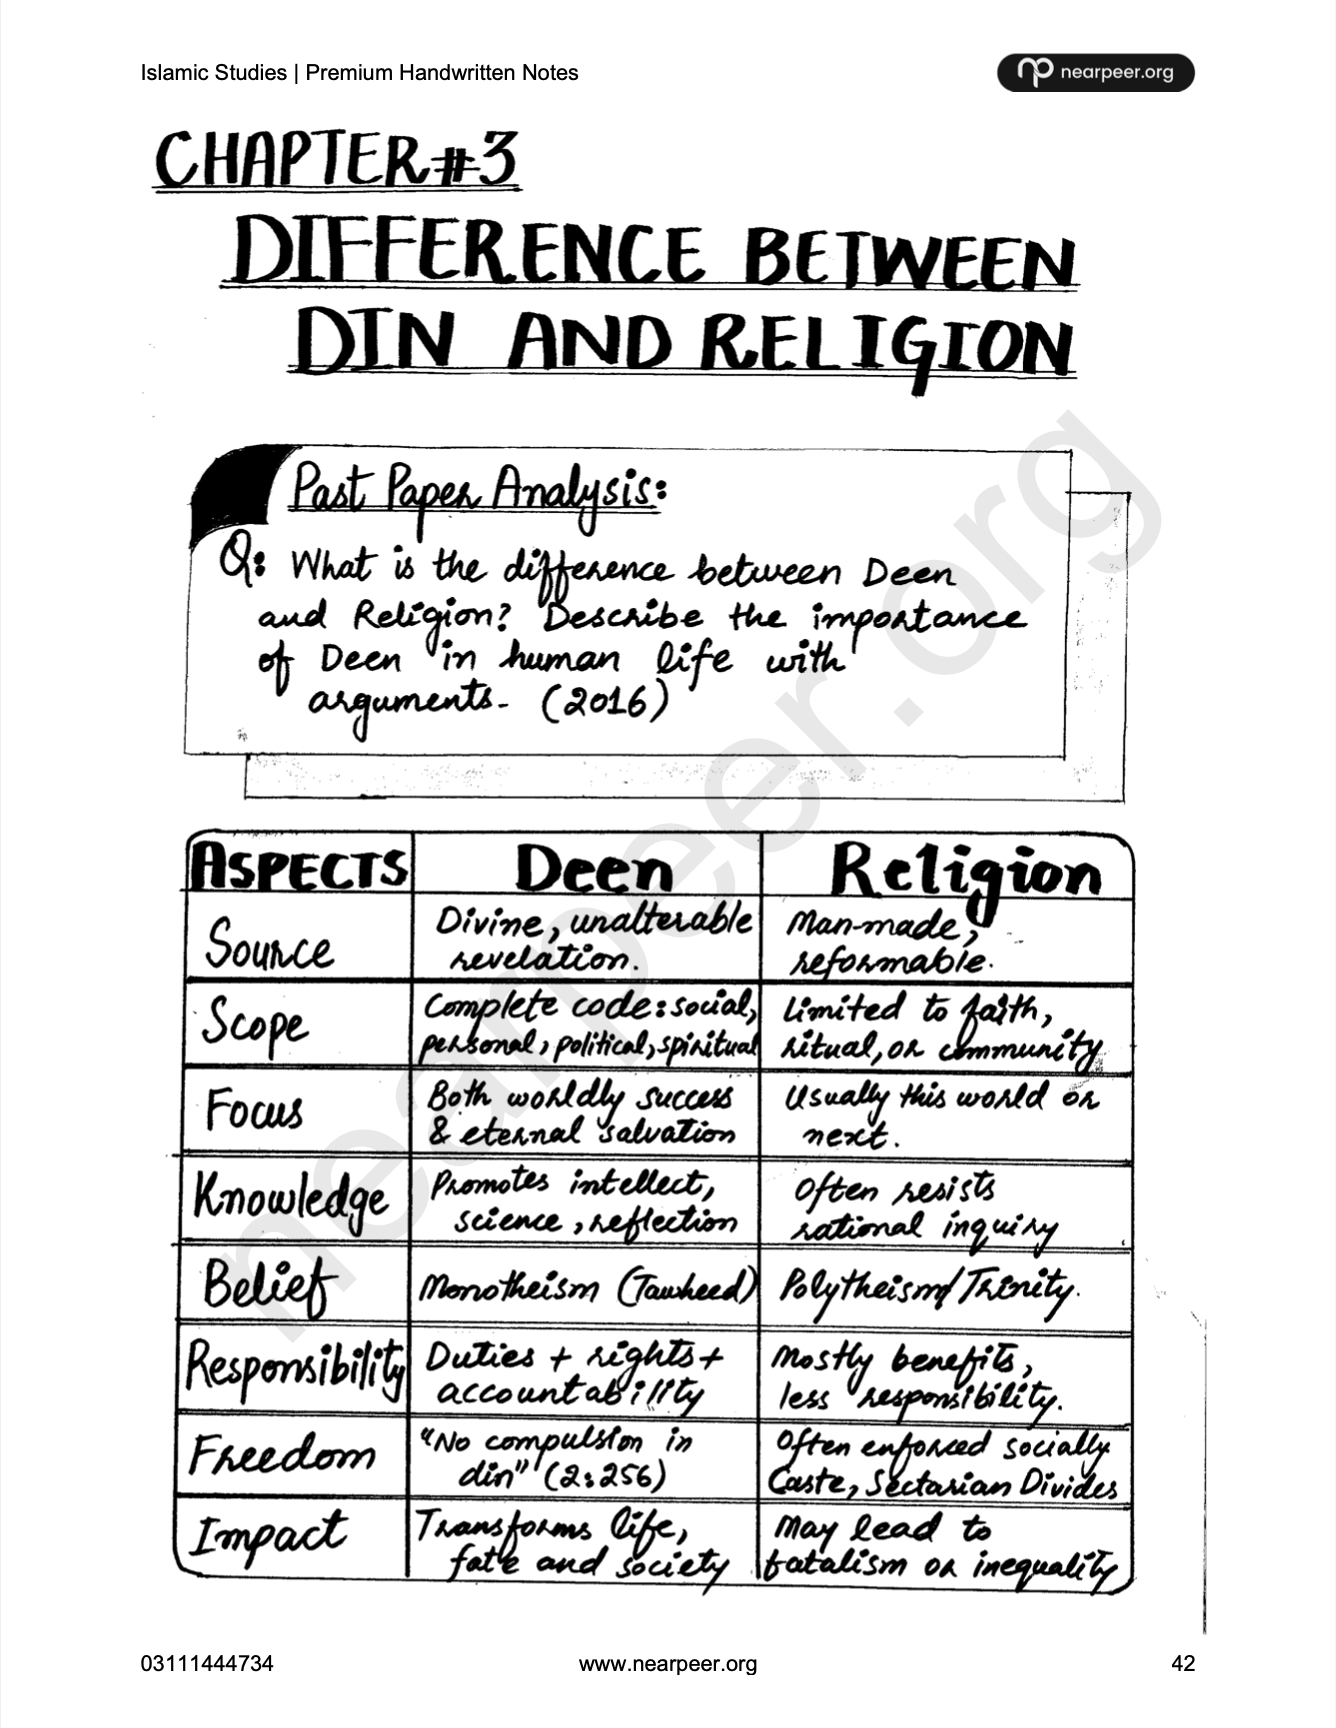 Islamic Studies | Premium Handwritten Notes
nearpeer.org
CHAPTER#3
DIFFERENCE BETWEEN
DIN AND RELIGION
Past Paper Analysis:
Q: What is the difference between Deen
and Religion? Describe the importance
of Deen in human life with
arguments- (2016)
ASPECTS Deen Religion
Source Divine, unalterable revelation. Man-made, reformable.
Scope Complete code: social, personal, political, spiritual Limited to faith, ritual, or community
Focus Both worldly success & eternal salvation Usually this world or next.
Knowledge Promotes intellect, science, reflection Often resists rational inquiry
Belief Monotheism (Tawheed) Polytheism/Trinity.
Responsibility Duties + rights + accountability Mostly benefits, less responsibility.
Freedom "No compulsion in din" (2:256) Often enforced socially Caste, Sectarian Divides
Impact Transforms life, fate and society May lead to fatalism or inequality
nearpeer.org
03111444734 www.nearpeer.org 42